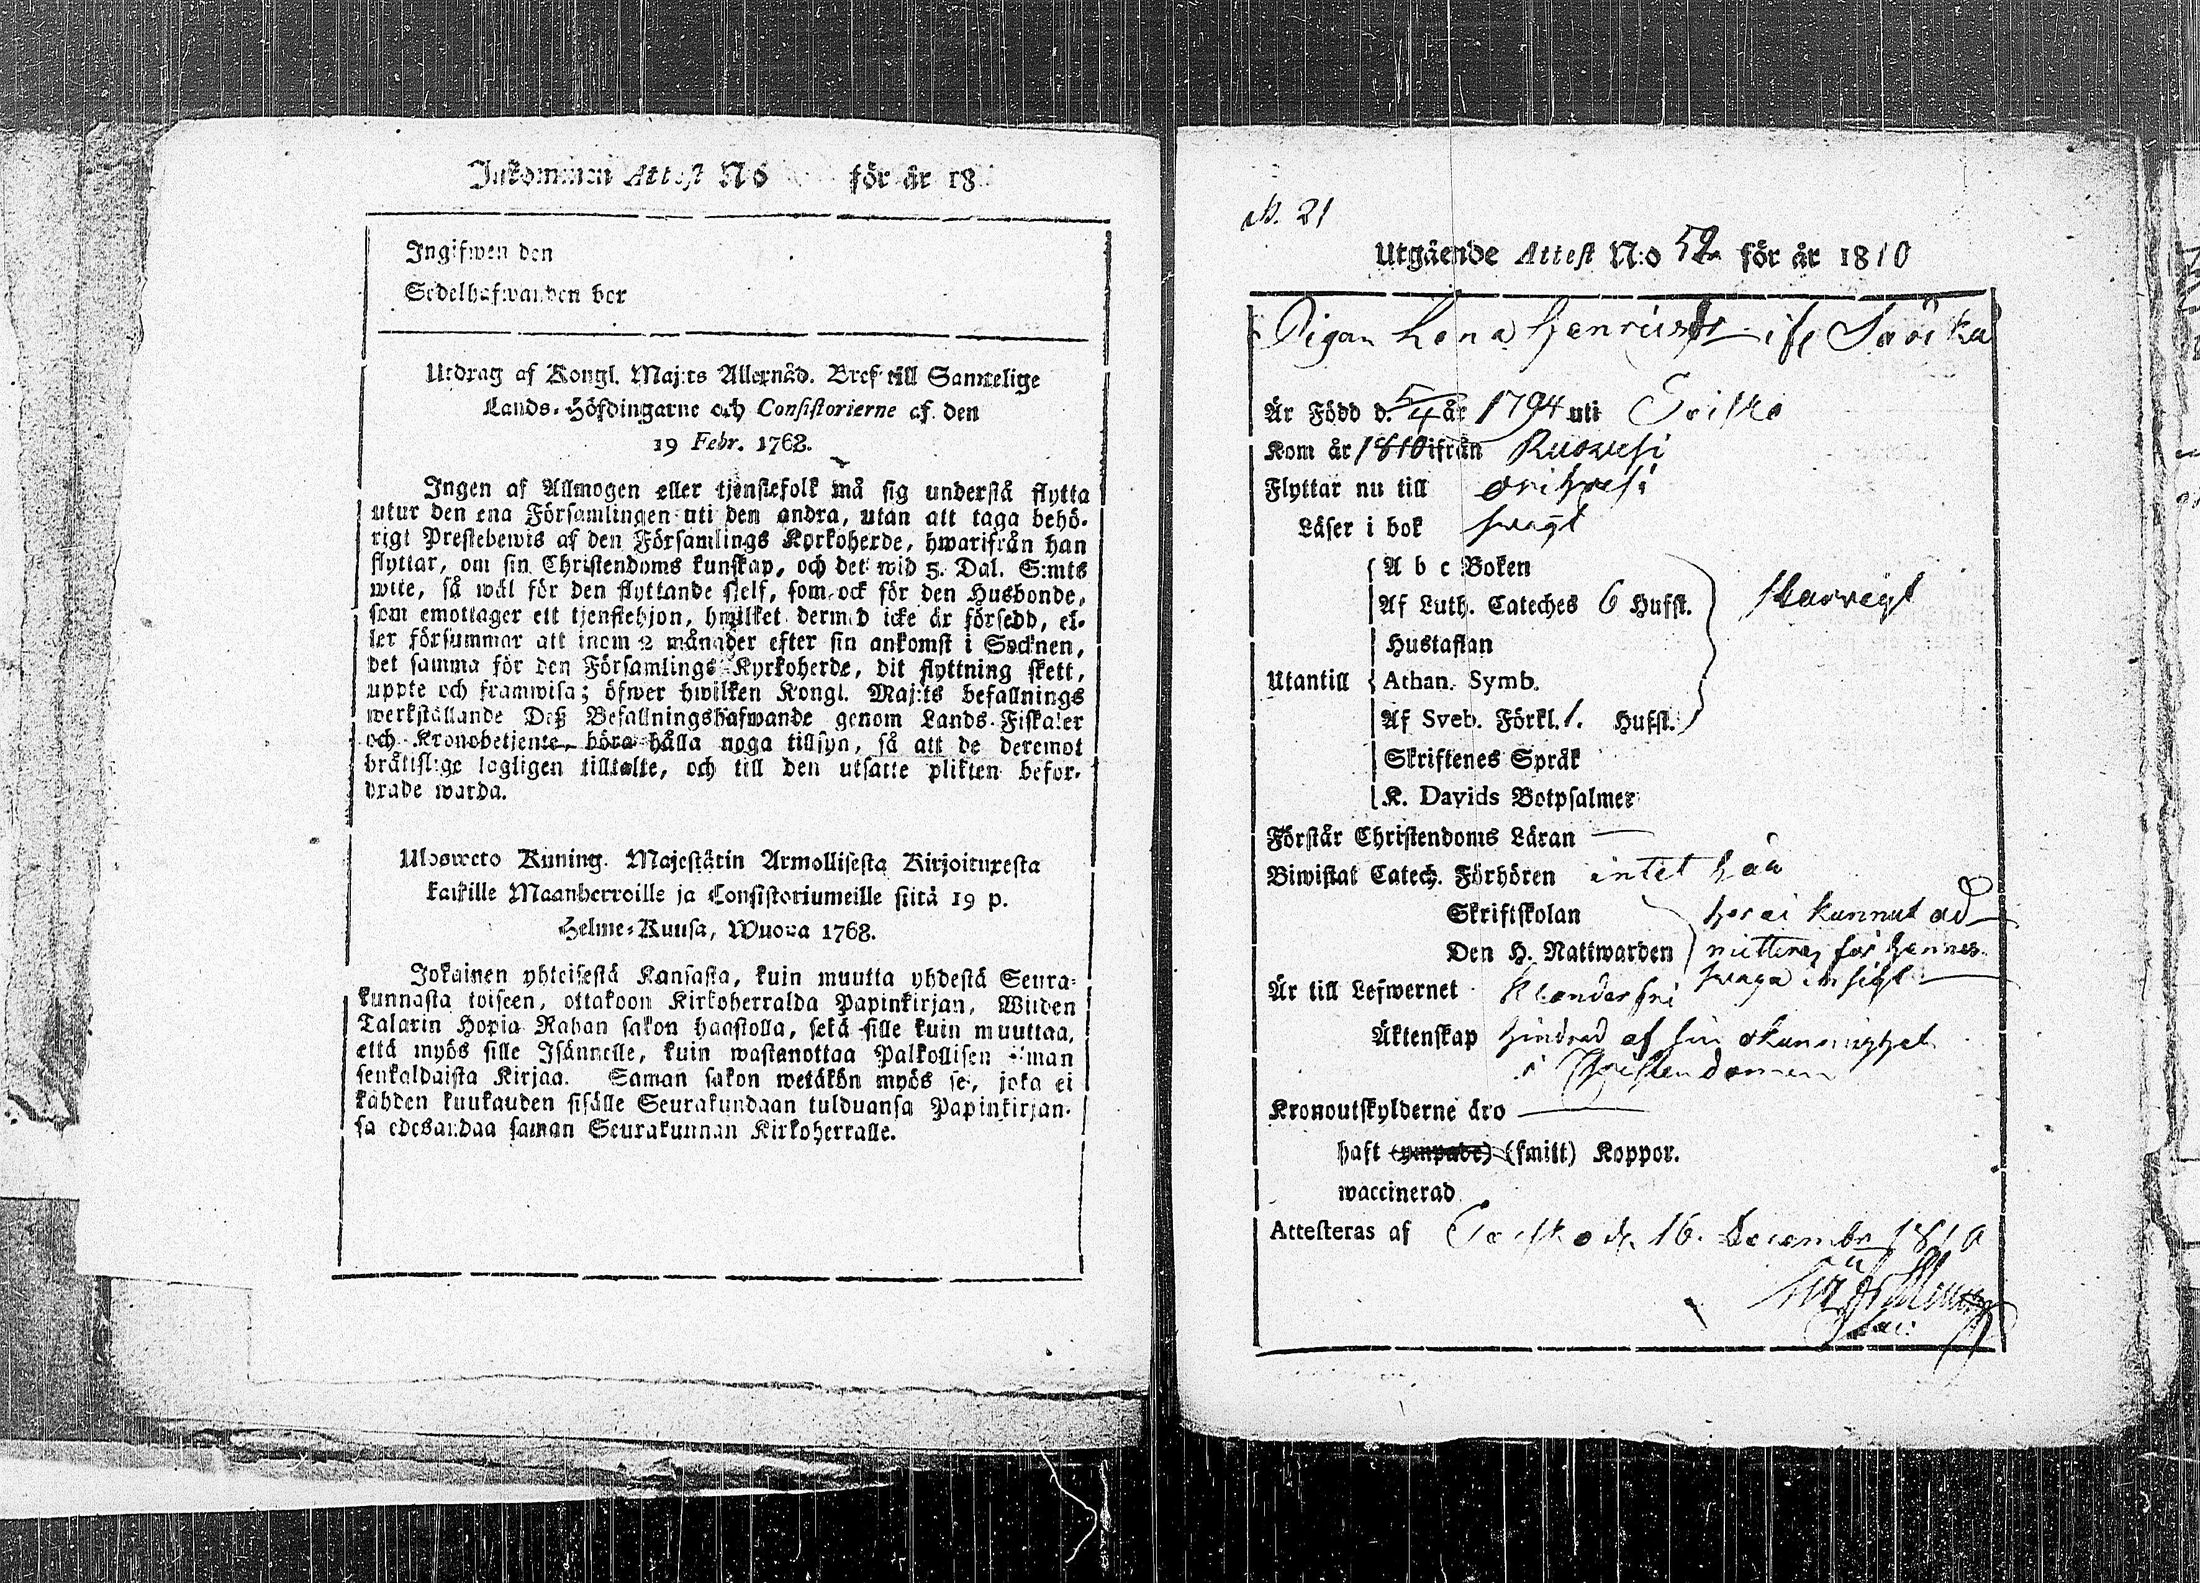 Inkommen Attest No för år 18
Ingifwen den
Sedelhafwanden bor
Utdrag af Kongl. Maj:ts Allernåd. Bref till Samtelige
Lands-Höfdingarne och Consistorierne af den
19 Febr. 1768.
Ingen af Allmogen eller tjenstefolk må sig understå flytta
utur den ena Församlingen uti den andra, utan att taga behö-
rigt Prestebewis af den Församlings Kyrkoherde, hwarifrån han
flyttar, om sin Christendoms kunskap, och det wid 5. Dal. S:mts
wite, så wäl för den flyttande sielf, som ock för den Husbonde,
som emottager ett tjenstehjon, hwilket dermed icke är försedd, el-
ler försummar att inom 2 månader efter sin ankomst i Socknen,
det samma för den Församlings Kyrkoherde, dit flyttning skett,
uppte och framwisa; öfwer hwilken Kongl. Maj:ts befallnings
werkställande Deß Befallningshafwande genom Lands-Fiskaler
och Kronobetjente, böra hålla noga tillsyn, så att de deremot
brättslige lagligen tilltalte, och till den utsatte plikten befor-
drade warda.
Ulosweto Kuning. Majestätin Armollisesta Kirjoituxesta
kaikille Maanherroille ja Consistoriumeille siitä 19 p.
Helme-Kuusa, Wuona 1768.
Jokainen yhteisestä Kansasta, kuin muutta yhdestä Seura-
kunnasta toiseen, ottakoon Kirkoherralda Papinkirjan, Wiiden
Talarin Hopia Rahan sakon haastolla, sekä sille kuin muuttaa,
että myös sille Isännelle, kuin wastanottaa Palkollisen ilman
senkaldaista Kirjaa. Saman sakon wetäkön myös se, joka ei
kahden kuukauden sisälle Seurakundaan tulduansa Papinkirjan-
sa edesandaa saman Seurakunnan Kirkoherralle.
N. 21
Utgående Attest N:o 52 för år 1810
Pigan Lena Henricsdr ifr
Är Född d. 5/4 år 1794 uti
Kom år 1810 ifrån Ruowesi
Flyttar nu till Orihwesi
Läser i bok swagt
A b c Boken
Af Luth. Cateches 6 Hufst. skarwigt
Hustaflan
Utantill Athan. Symb.
Af Sveb. Förkl. 1. Hufst.
Skriftenes Språk
K. Davids Botpsalmer
Förstår Christendoms Läran —
Biwistat Catech. Förhören intet här
Skriftskolan har ei kunnat ad-
Den H. Nattwarden mitteras för hennes
swaga insigt
Är till Lefwernet Klanderfri
Äktenskap hindrad af sin okunnighet
i Christendomen
Kronoutskylderne äro —
haft (ympade) (smitt) Koppor.
waccinerad
Attesteras af d. 16. Decembr 1810